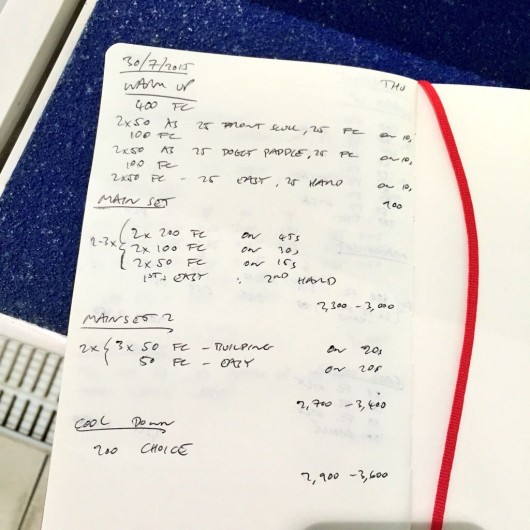 30/7/2015
THU
WARM UP
400 FC
2x50 AS 25 FRONT SCULL, 25 FC ON 10,
100 FC
2x50 AS 25 DOGGY PADDLE, 25 FC ON 10,
100 FC
2x50 FC - 25 EASY, 25 HARD ON 10,
MAIN SET
2-3x { 2x 200 FC ON 45s
2x 100 FC ON 30s
2x 50 FC ON 15s
1ST EASY : 2ND HARD
2,300 - 3,000
MAIN SET 2
2x { 3x 50 FC - BUILDING ON 20s
50 FC - EASY ON 20s
2,700 - 3,400
COOL DOWN
200 CHOICE
2,900 - 3,600